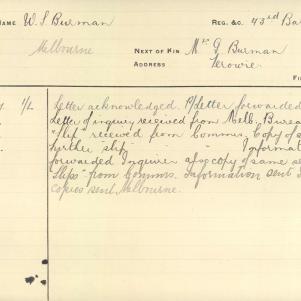 NAME W.S Burman REG. &C. 43rd Ba
Melbourne NEXT OF KIN Mrs G Burman
ADDRESS Terowie.
FI
1/2 Letter acknowledged. P/Letter forwarded
Letter of inquiry received from Melb. Burea
"slip" received from Commrs. Copy of s
further "slip" " " Informat
forwarded Inquirer also copy of same
slips" from Commrs. Information sent I
copies sent Melbourne.